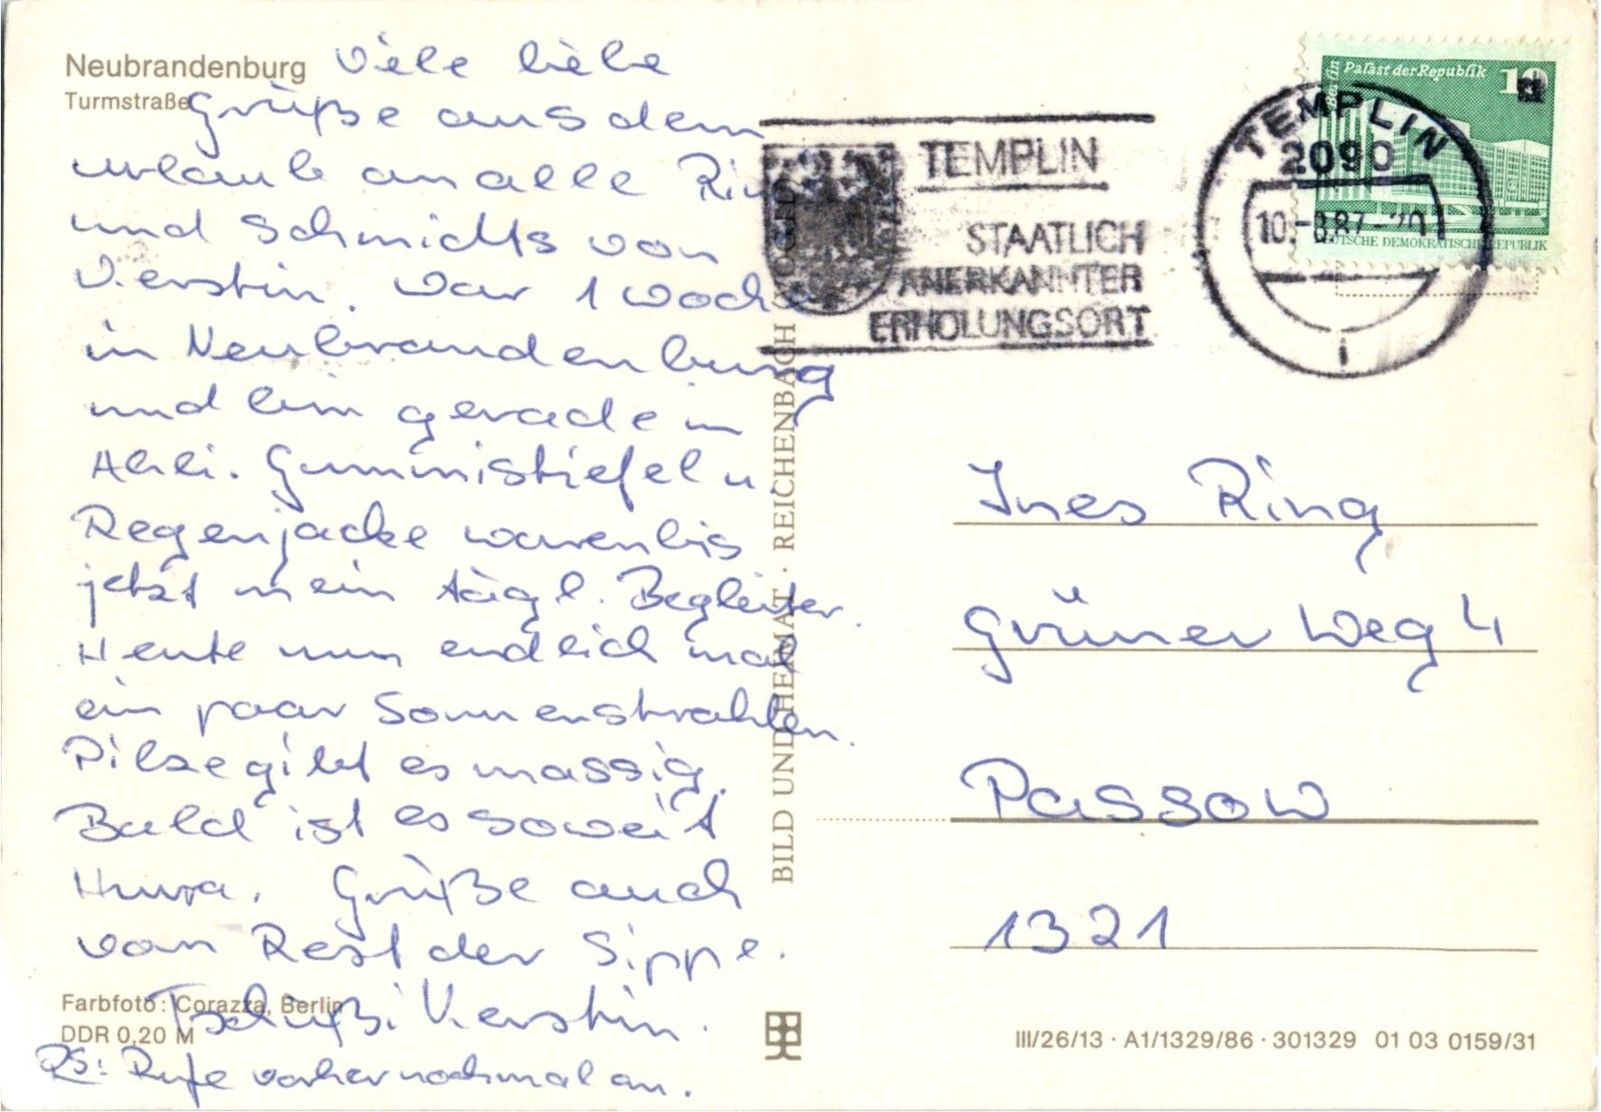 Neubrandenburg
Turmstraße
Viele liebe
Grüße aus dem
Urlaub an alle
und Schmidts von
Kerstin. War 1 Woche
in Neubrandenburg
und bin gerade in
Ahli. Gummistiefel u.
Regenjacke waren bis
jetzt mein tägl. Begleiter.
Heute nun endlich mal
ein paar Sonnenstrahlen.
Pilze gibt es massig.
Bald ist es soweit
Hurra. Grüße auch
vom Rest der Sippe.
Tschüßi Kerstin.
PS: Rufe vorher nochmal an.
Farbfoto: Corazza, Berlin
DDR 0,20 M
BILD UND HEIMAT · REICHENBACH
TEMPLIN
STAATLICH
ANERKANNTER
ERHOLUNGSORT
TEMPLIN
2090
i
Berlin
Palast der Republik
10
DEUTSCHE DEMOKRATISCHE REPUBLIK
Ines Ring
Grüner Weg 4
Passow
1321
III/26/13 · A1/1329/86 · 301329 01 03 0159/31